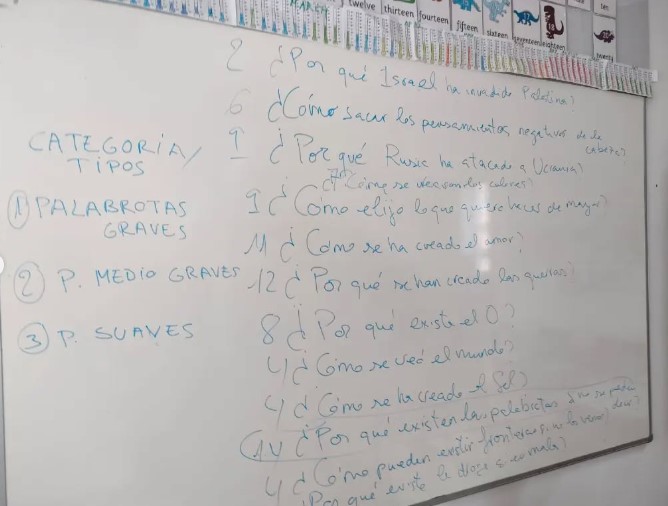 twelve
thirteen
fourteen
fifteen
sixteen
seventeen
eighteen
ten
twenty
2 ¿Por qué Israel ha invadido Palestina?
6 ¿Cómo sacar los pensamientos negativos de la
cabeza?
CATEGORÍA/
TIPOS
1 ¿Por qué Rusia ha atacado a Ucrania?
¿Cómo se crearon los colores?
① PALABROTAS
GRAVES
9 ¿Cómo elijo lo que quiero hacer de mayor?
11 ¿Cómo se ha creado el amor?
② P. MEDIO GRAVES
12 ¿Por qué se han creado las guerras?
③ P. SUAVES
8 ¿Por qué existe el 0?
4 ¿Cómo se creó el mundo?
4 ¿Cómo se ha creado el Sol?
14 ¿Por qué existen las palabrotas si no se pueden
decir?
4 ¿Cómo pueden existir fronteras si no las vemos?
4 ¿Por qué existe la droga si es mala?